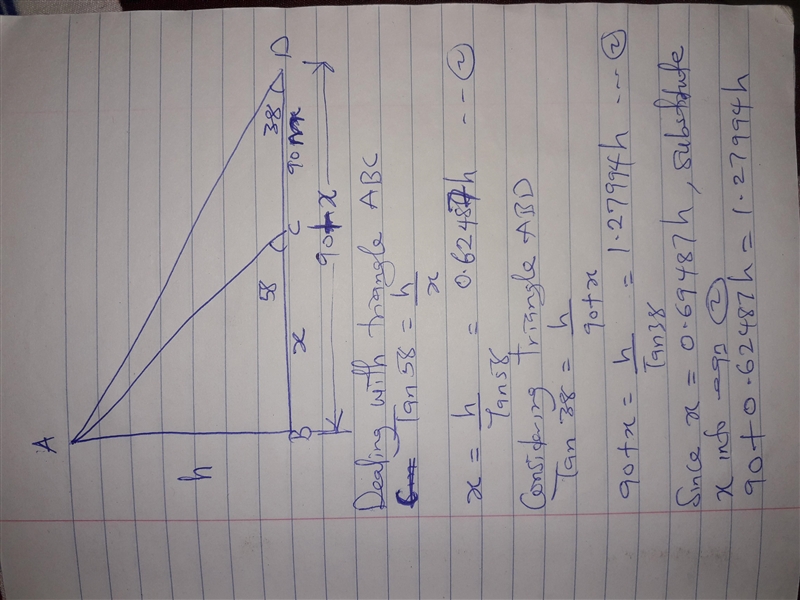 A
h
B
x
58
C
90m
38
D
90+x
Dealing with triangle ABC
Tan 58 = h
x
x = h = 0.62487h -- (2)
Tan58
Considering Triangle ABD
Tan 38 = h
90+x
90+x = h = 1.27994h --- (2)
Tan38
Since x = 0.69487h, substitute
x into eqn (2)
90+0.62487h = 1.27994h